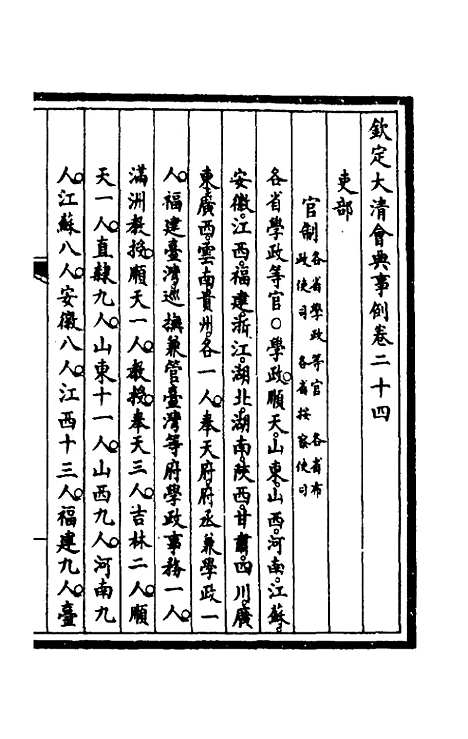 欽定大清會典事例卷二十四
吏部
官制各省學政等官 各省布政使司 各省按察使司
各省學政等官○學政。順天。山東。山西。河南。江蘇。
安徽。江西。福建。浙江。湖北。湖南。陝西。甘肅。四川。廣
東。廣西。雲南。貴州。各一人。奉天府府丞兼學政一
人。福建臺灣巡撫兼管臺灣等府學政事務一人。
滿洲教授。順天一人。教授。奉天三人。吉林二人。順
天一人。直隸九人。山東十一人。山西九人。河南九
人。江蘇八人。安徽八人。江西十三人。福建九人。臺